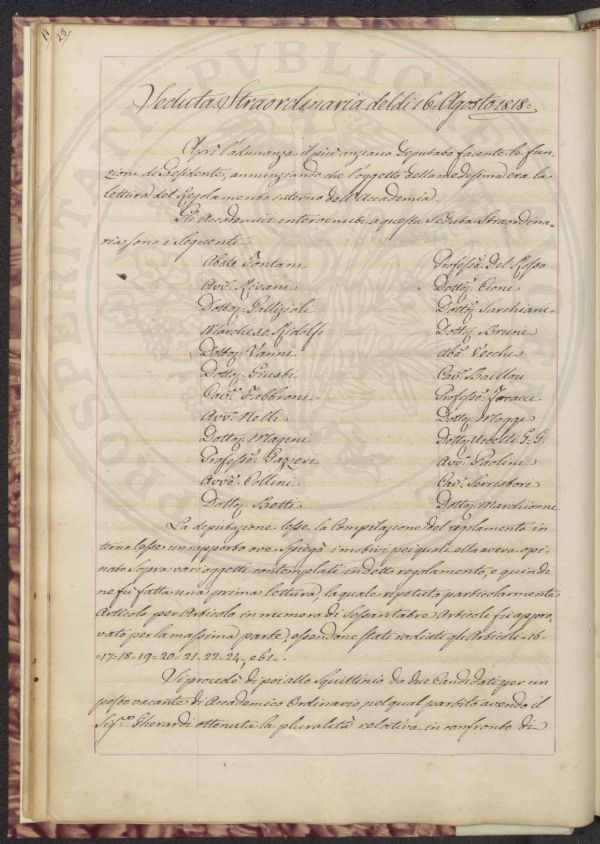 11 23
Veduta Straordinaria del dì 16. Agosto 1818.
Aprì l'adunanza il più anziano Deputato facente le fun-
zioni di Presidente, annunziando che l'oggetto della medesima era la
lettura del Regolamento interno dell'Accademia.
Gli Accademici intervenuti a questa Seduta Straordina-
ria sono i seguenti
Abate Fontani
Avv.o Rivani
Dottor Gallizioli
Marchese Ridolfi
Dottor Vanni
Dottor Giusti
Cav.e Fabbroni
Avv.o Nelli
Dottor Magini
Profess.e Gazzeri
Avv.o Collini
Dottor Betti
Profess.e Del Rosso
Dottor Cioni
Dottor Sarchiani
Dottor Bruni
Ab.e Vecchi
Cav.e Baillou
Profess.e
Dottor Moggi
Dottor Uccelli F. G.
Avv.o Paolini
Cav.e Serristori
Dottor Marchionni
La deputazione lesse la Compilazione del regolamento in
terno lesse un rapporto ove spiegò i motivi pei quali ella aveva opi-
nato sopra varj oggetti contemplati in detto regolamento, e quindi
ne fù fatta una prima lettura, la quale ripetuta particolarmente
Articolo per Articolo in numero di Sessantatre Articoli fù appro-
vato per la massima parte, essendone stati radiati gli Articoli = 16 =
= 17 = 18 = 19 = 20 = 21 = 22 = 24 =, e 61.
Si procedè di poi allo Squittinio da due Candidati per un
posto vacante di Accademico Ordinario, pel qual partito avendo il
Sig.e Gherardi ottenuta la pluralità relativa in confronto di
PUBLICAE
PROSPERITATI